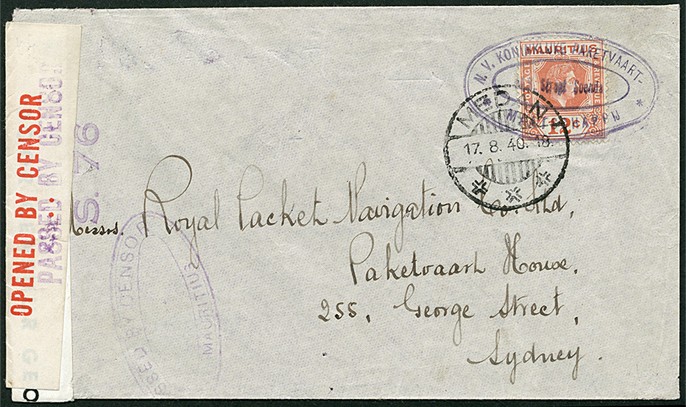 OPENED BY CENSOR
PASSED BY CENSOR
S. 76
N. V. KONINKLIJKE PAKETVAART-
MAATSCHAPPIJ
MAURITIUS
POSTAGE
REVENUE
12c
MEDAN
17. 8. 40. 18.
Messrs. Royal Packet Navigation Co. Ltd,
Paketvaart House.
255, George Street,
Sydney.
PASSED BY CENSOR
MAURITIUS